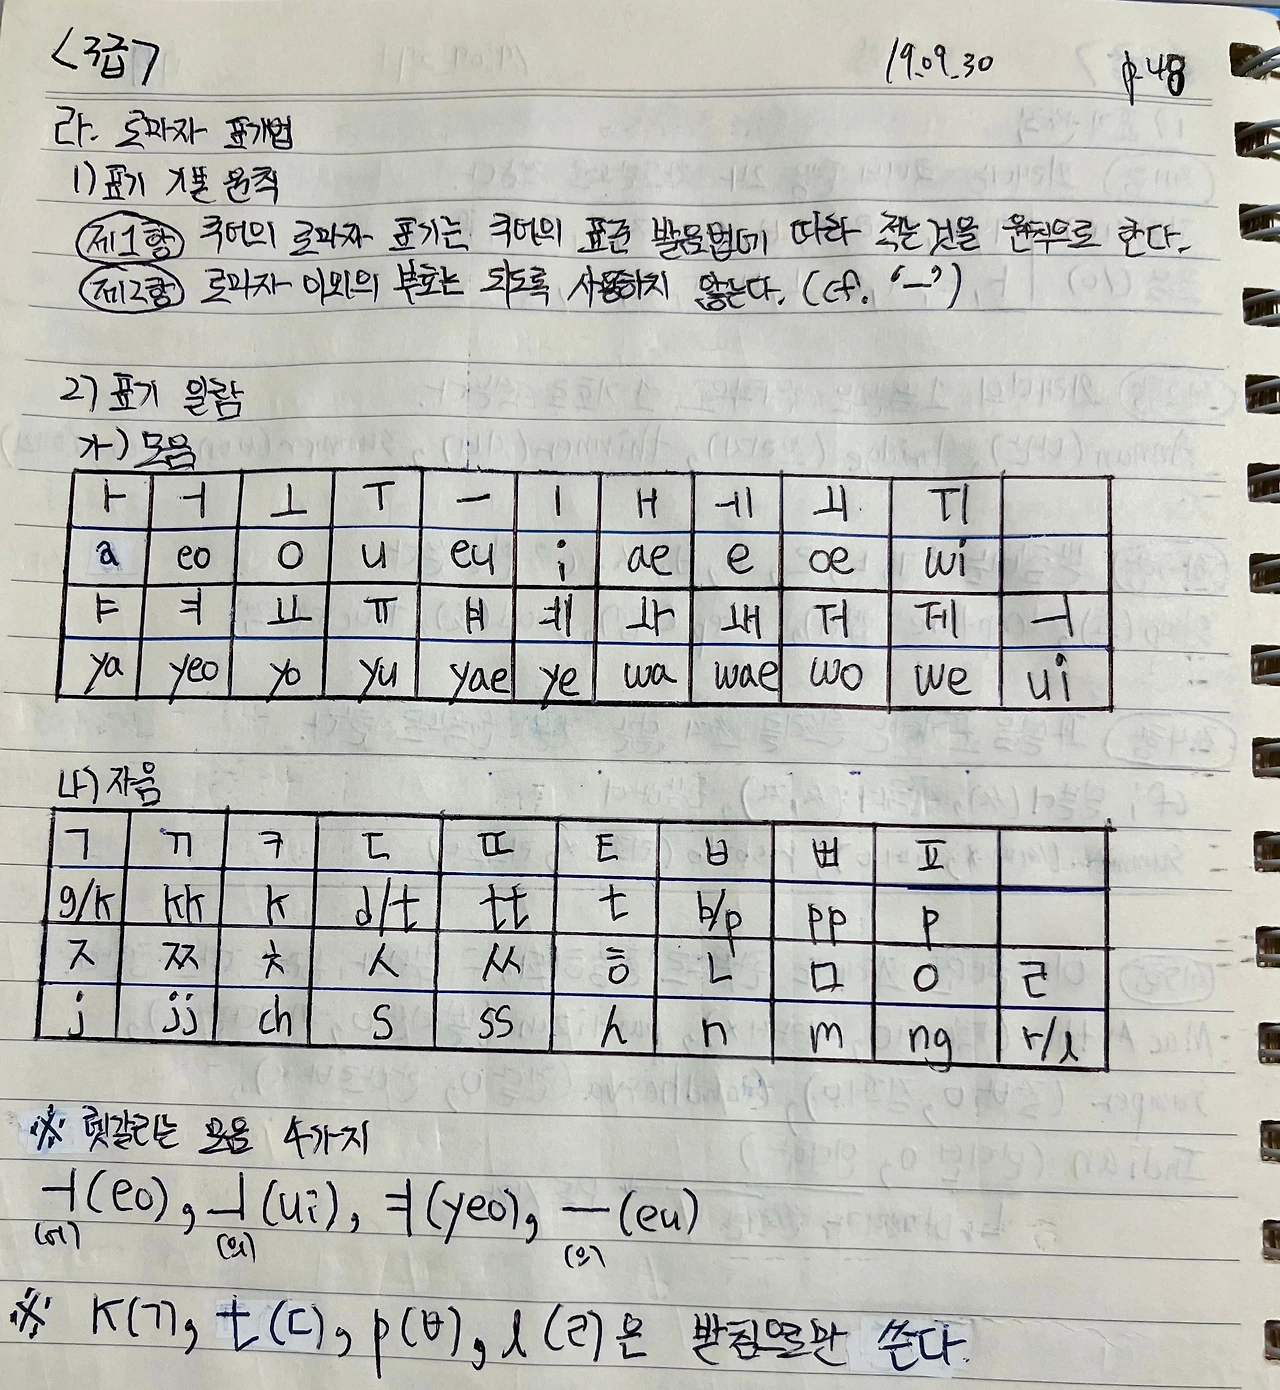 <3급>
19.09.30
p.48
라. 로마자 표기법
1) 표기 기본 원칙
제1항 국어의 로마자 표기는 국어의 표준 발음법에 따라 적는 것을 원칙으로 한다.
제2항 로마자 이외의 부호는 되도록 사용하지 않는다. (cf. '-')
2) 표기 일람
가) 모음
ㅏ ㅓ ㅗ ㅜ ㅡ ㅣ ㅐ ㅔ ㅚ ㅟ
a eo o u eu i ae e oe wi
ㅑ ㅕ ㅛ ㅠ ㅒ ㅖ ㅘ ㅙ ㅝ ㅞ ㅢ
ya yeo yo yu yae ye wa wae wo we ui
나) 자음
ㄱ ㄲ ㅋ ㄷ ㄸ ㅌ ㅂ ㅃ ㅍ
g/k kk k d/t tt t b/p pp p
ㅈ ㅉ ㅊ ㅅ ㅆ ㅎ ㄴ ㅁ ㅇ ㄹ
j jj ch s ss h n m ng r/l
※ 헷갈리는 모음 4가지
ㅓ(eo), ㅢ(ui), ㅕ(yeo), ㅡ(eu)
(어) (의) (으)
※ k(ㄱ), t(ㄷ), p(ㅂ), l(ㄹ)은 받침으로만 쓴다.